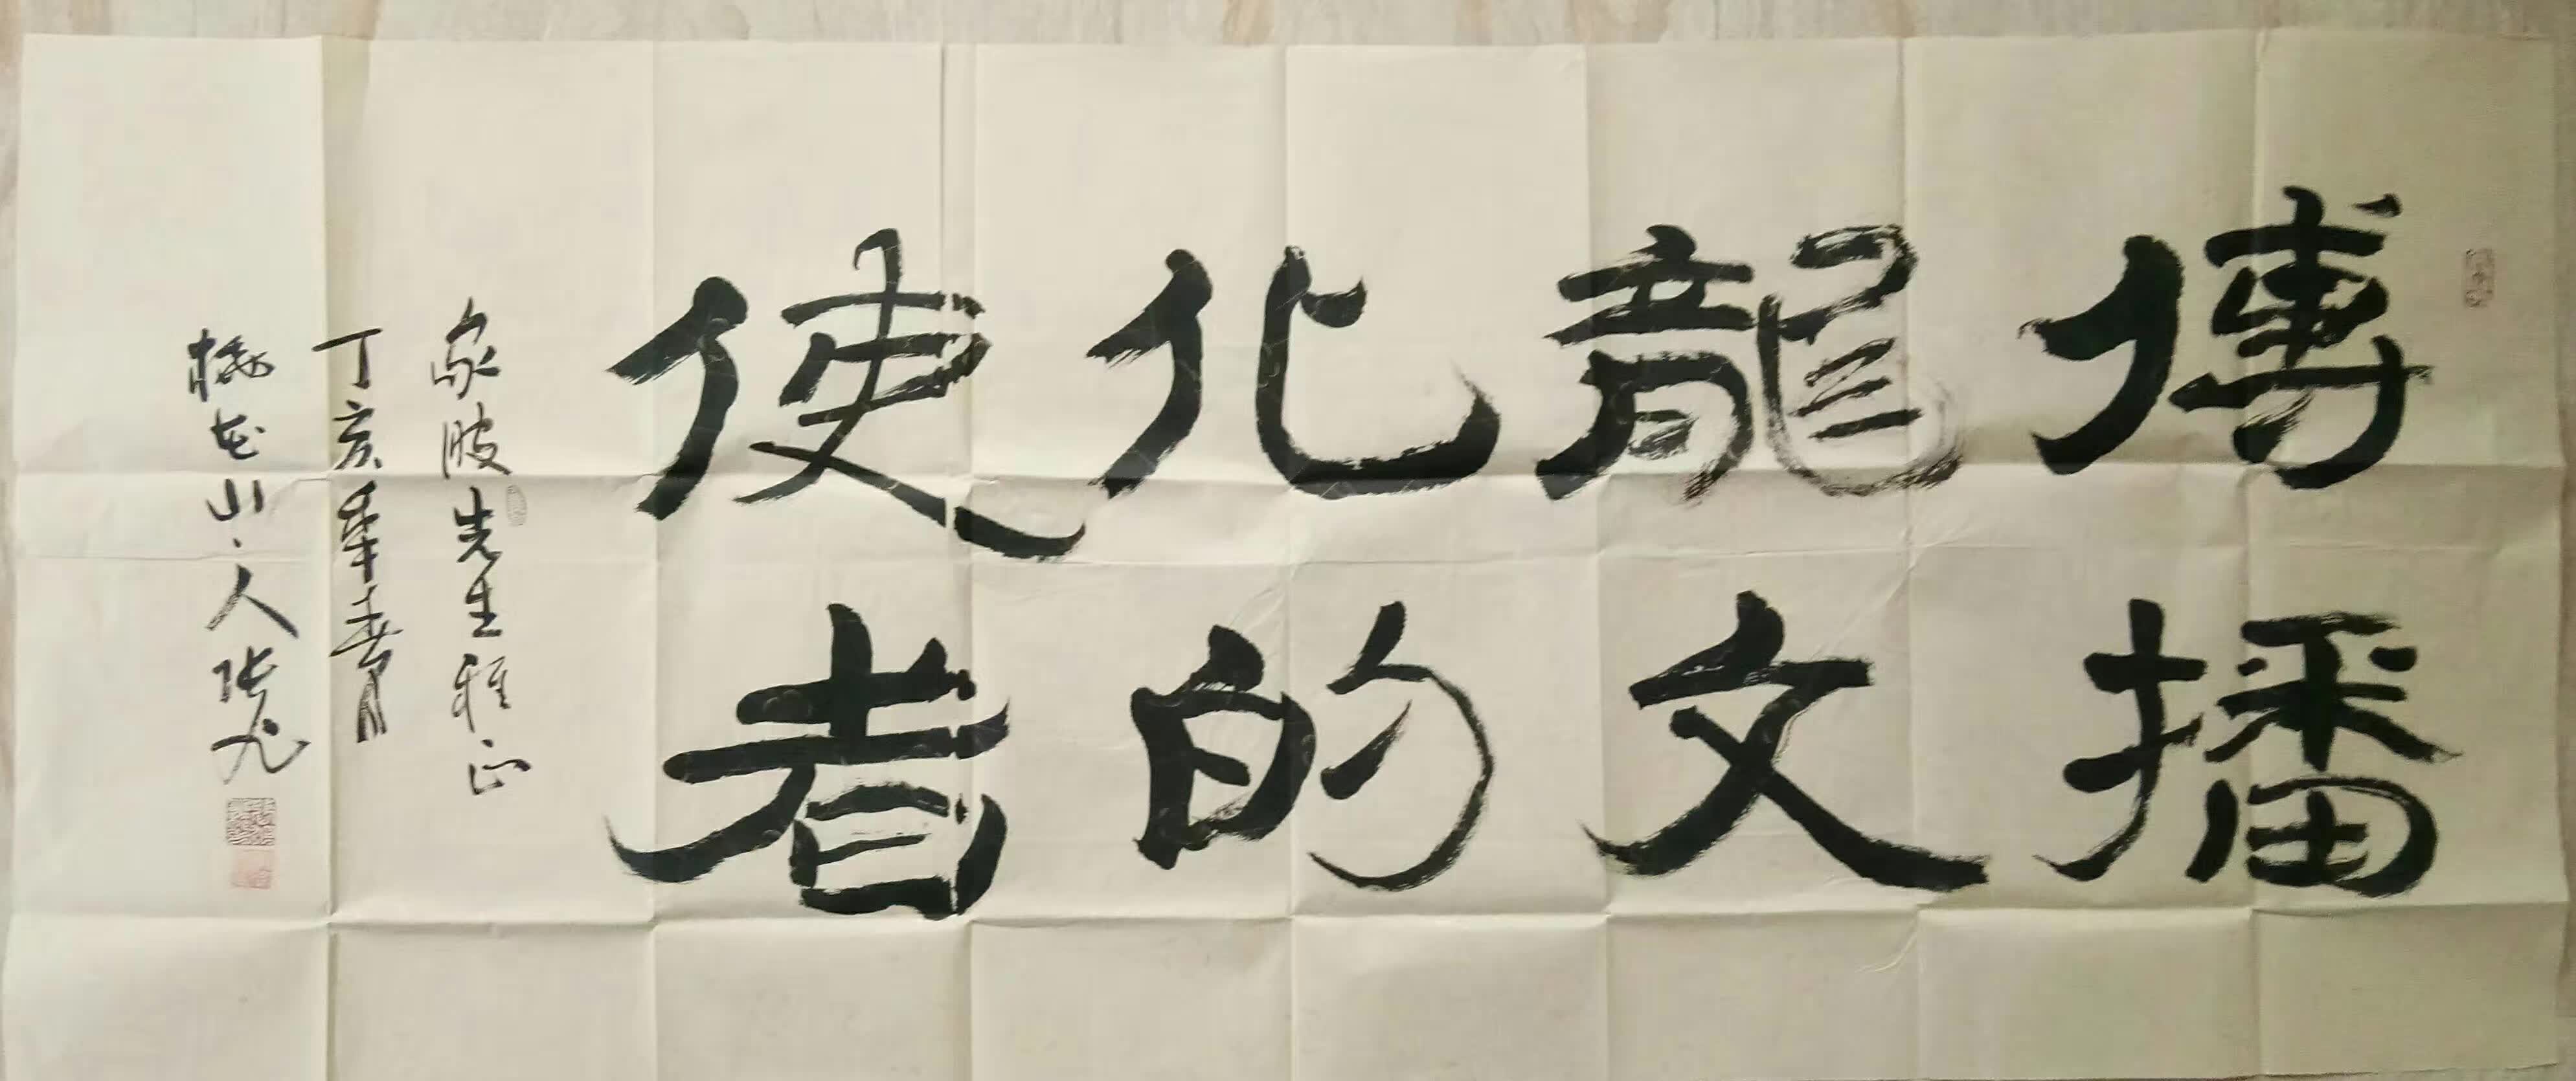 傳播
龍文
化的
使者
家波先生雅正
丁亥年春月
桃花山人張九